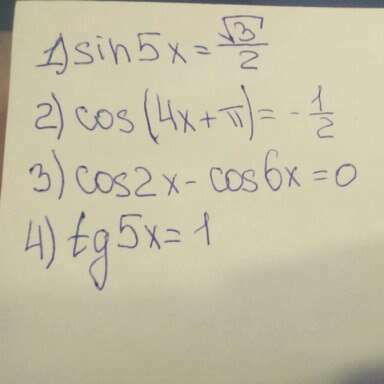 1) sin5x = √3/2
2) cos(4x+π) = -1/2
3) cos2x - cos6x = 0
4) tg5x = 1